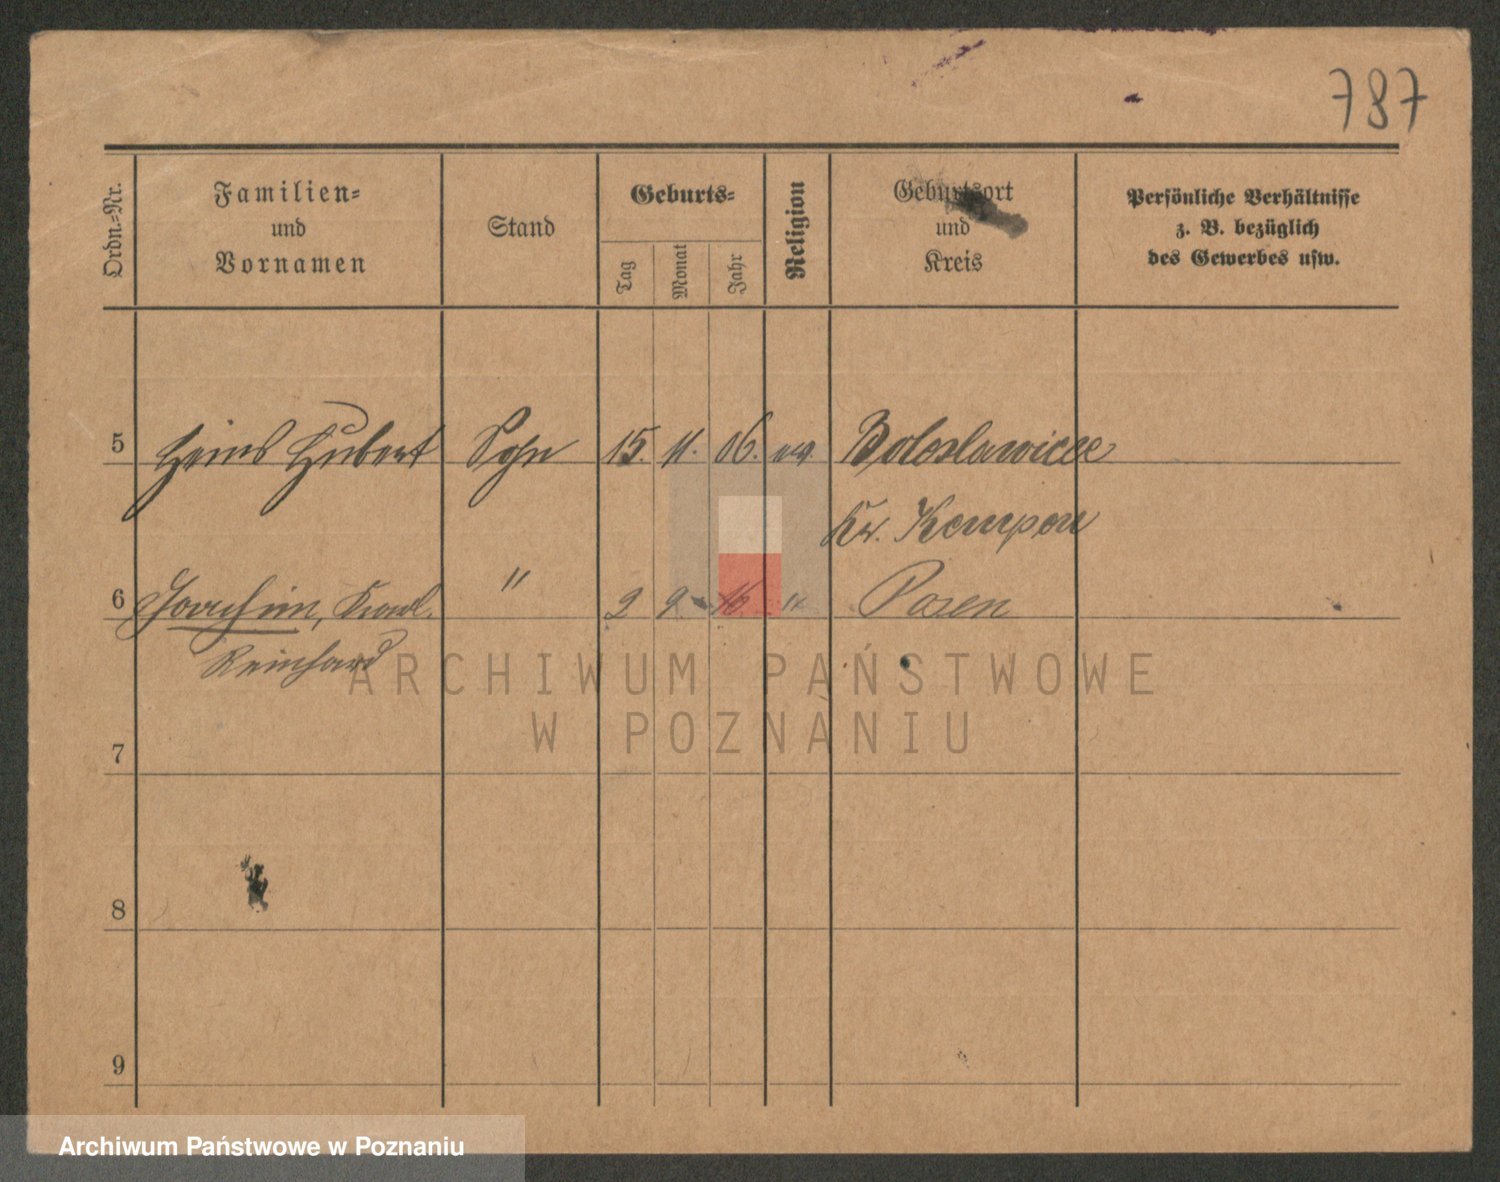 787
Ordn.=Nr.
Familien=
und
Vornamen
Stand
Geburts=
Tag
Monat
Jahr
Religion
Geburtsort
und
Kreis
Persönliche Verhältnisse
z. B. bezüglich
des Gewerbes usw.
5 Heinz Hubert Sohn 15. 11. 06. ev Boloslawice
Kr. Kempen
6 Joachim, Karl " 2 9. 16. " Posen
Reinhard
ARCHIWUM PAŃSTWOWE
W POZNANIU
7
8
9
Archiwum Państwowe w Poznaniu